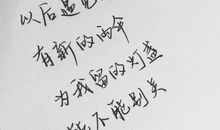 以后遇见
有新的雨伞
为我留的灯盏
能不能别关